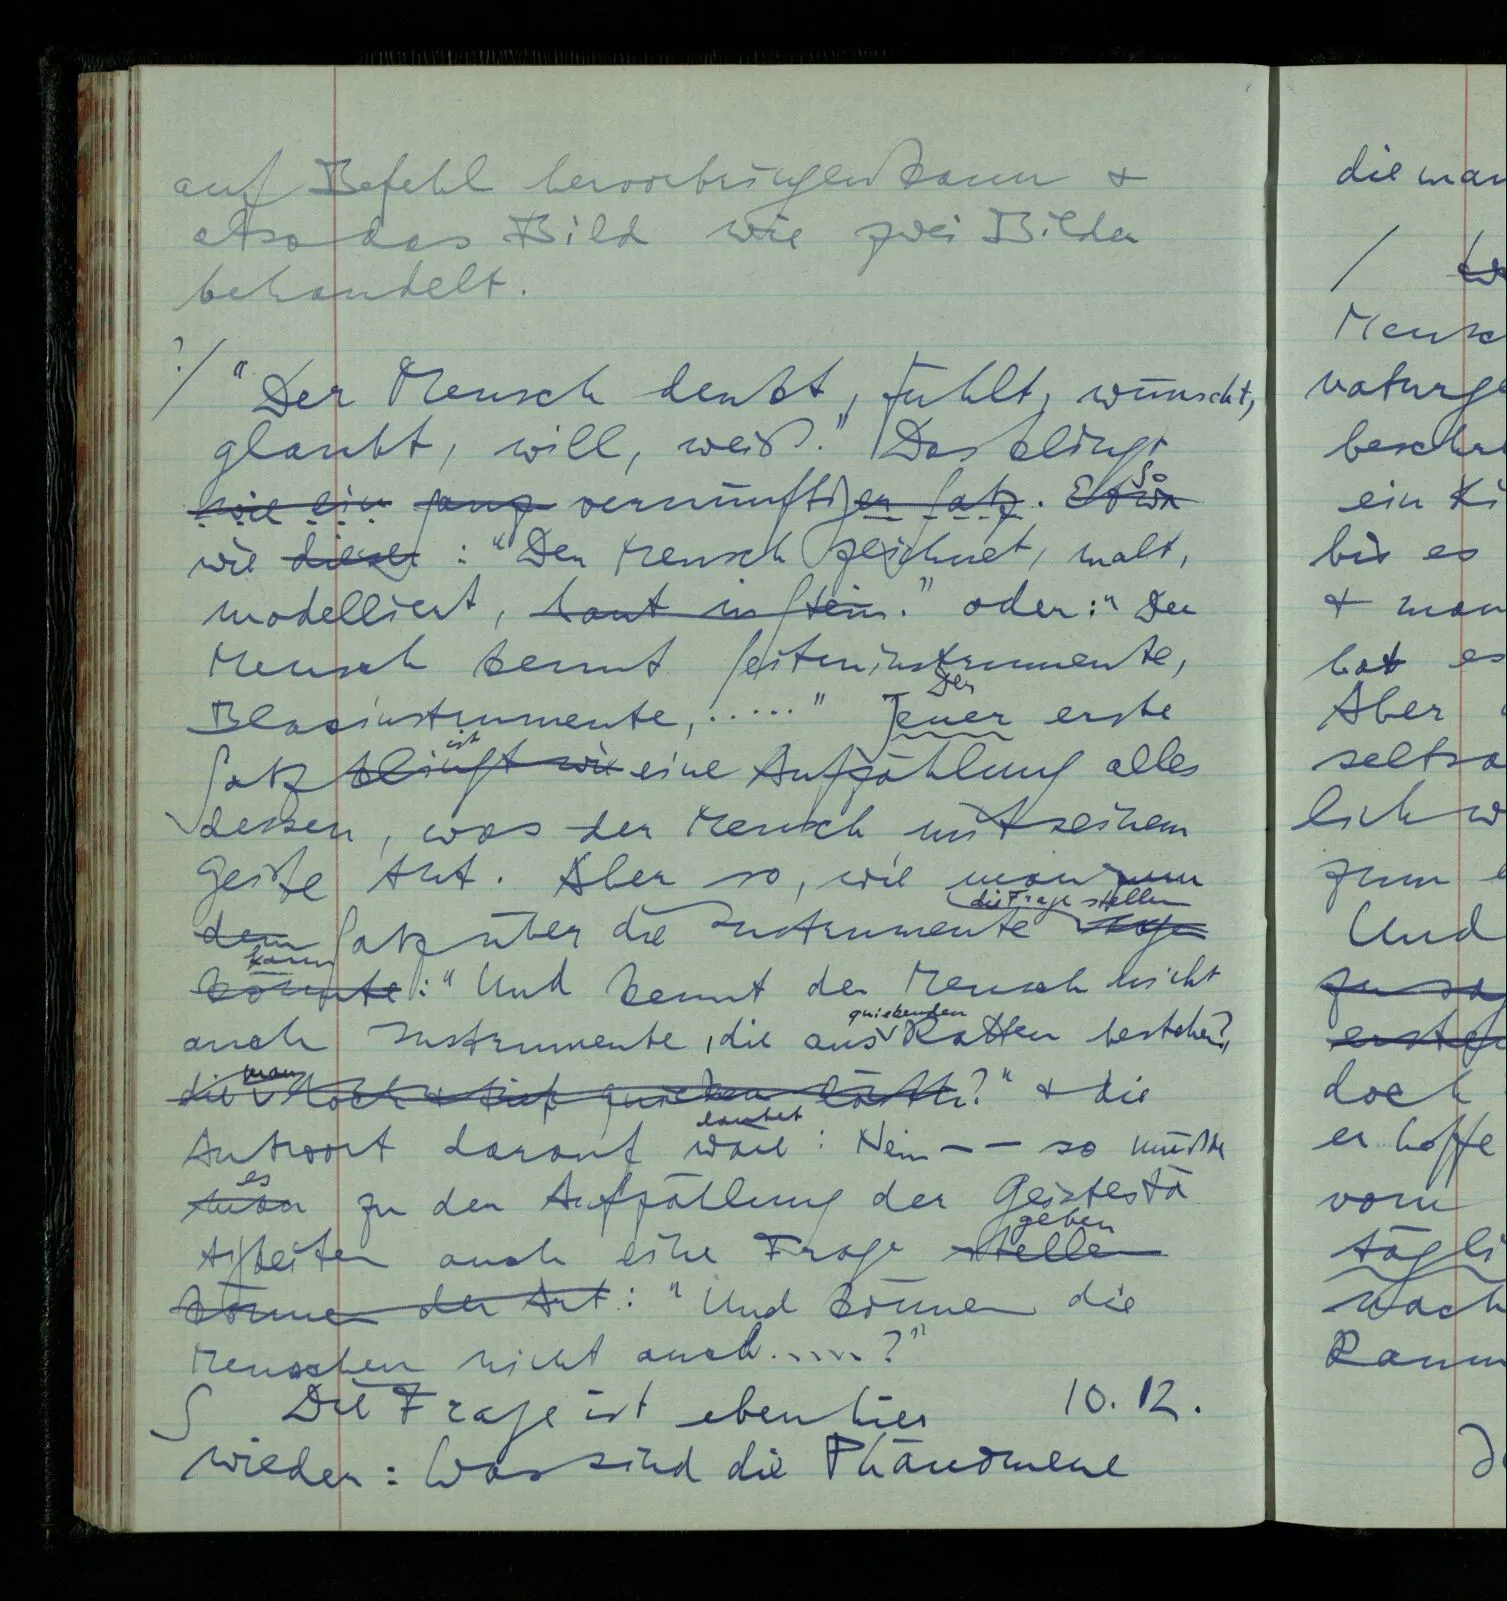 auf Befehl hervorbringen kann &
also das Bild wie zwei Bilder
behandelt.
?/ "Der Mensch denkt, fühlt, wünscht,
glaubt, will, weiß." Das klingt
So
wie ein ganz vernünftiger Satz. Etwa
wie dieser: "Der Mensch zeichnet, malt,
modelliert, haut in Stein." oder: "Der
Mensch kennt Saiteninstrumente,
Der
Blasinstrumente, ....." Jener erste
ist
Satz klingt wie eine Aufzählung alles
dessen, was der Mensch mit seinem
Geiste tut. Aber so, wie man zum
die Frage stellen
dem Satz über die Instrumente
kann
könnte: "Und kennt der Mensch nicht
quiekenden
auch Instrumente, die aus Ratten bestehen?,
man
die hoch & tief quieken läßt?" & die
lautet
Antwort darauf wäre: Nein –– so müßte
es
man zu der Aufzählung der Geistestä
geben
tigkeiten auch eine Frage stellen
können der Art: "Und können die
Menschen nicht auch.....?"
10.12.
∫ Die Frage ist eben hier
wieder: Was sind die Phänomene
die man
/
Mensc
naturge
beschre
ein Ki
bis es
& man
hat es
Aber
seltsa
lich w
zum e
Und
zu sag
doch
er hoffe
vom
tägli
nach
Raum